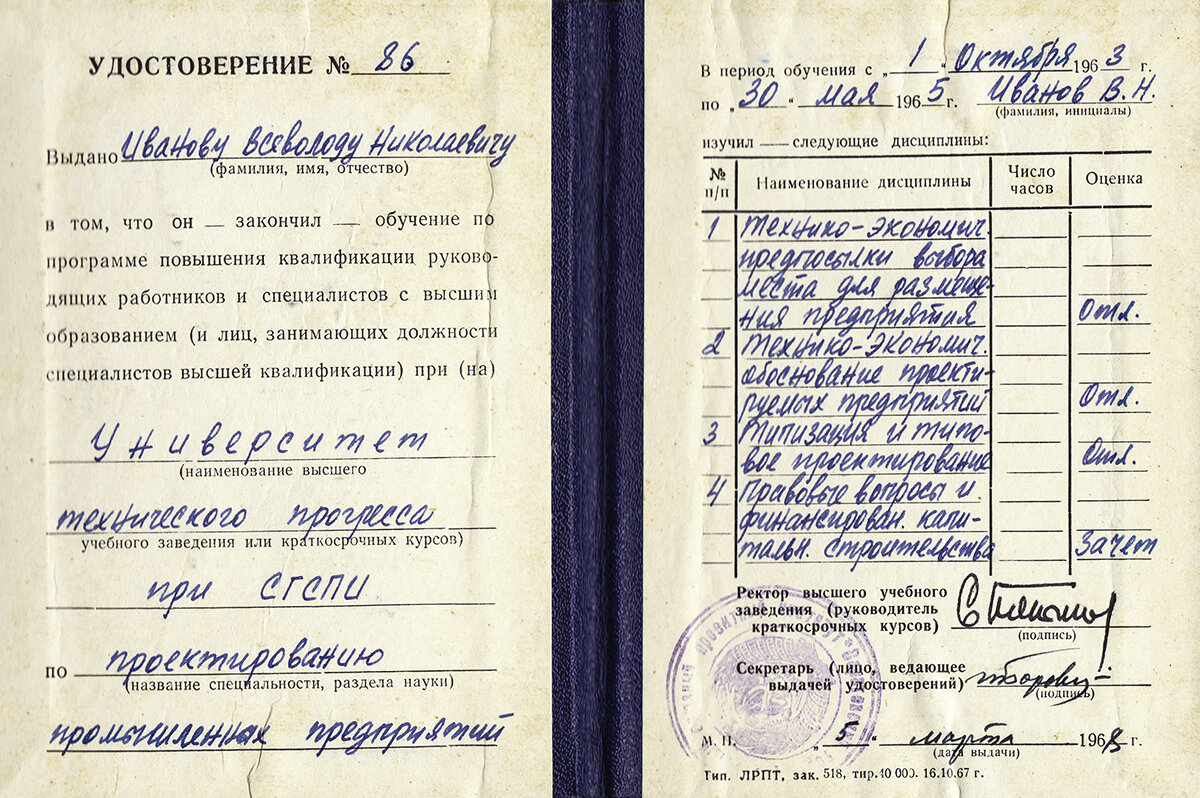 УДОСТОВЕРЕНИЕ № 86
Выдано Иванову Всеволоду Николаевичу
(фамилия, имя, отчество)
в том, что он — закончил — обучение по
программе повышения квалификации руково-
дящих работников и специалистов с высшим
образованием (и лиц, занимающих должности
специалистов высшей квалификации) при (на)
Университет
(наименование высшего
технического прогресса
учебного заведения или краткосрочных курсов)
при СГСПИ
по проектированию
(название специальности, раздела науки)
промышленных предприятий
В период обучения с „1“ Октября 1963 г.
по „30“ мая 1965 г. Иванов В.Н.
(фамилия, инициалы)
изучил — следующие дисциплины:
№ п/п Наименование дисциплины Число часов Оценка
1 Технико-экономич.
предпосылки выбора
места для размеще-
ния предприятия Отл.
2 Технико-экономич.
обоснование проекти-
руемых предприятий Отл.
3 Типизация и типо-
вое проектирование Отл.
4 Правовые вопросы и
финансирован. капи-
тальн. строительства Зачет
Ректор высшего учебного
заведения (руководитель
краткосрочных курсов)
(подпись)
Секретарь (лицо, ведающее
выдачей удостоверений)
(подпись)
М. П. „5“ марта 1968 г.
(дата выдачи)
Тип. ЛРПТ, зак. 518, тир. 40 000. 16.10.67 г.